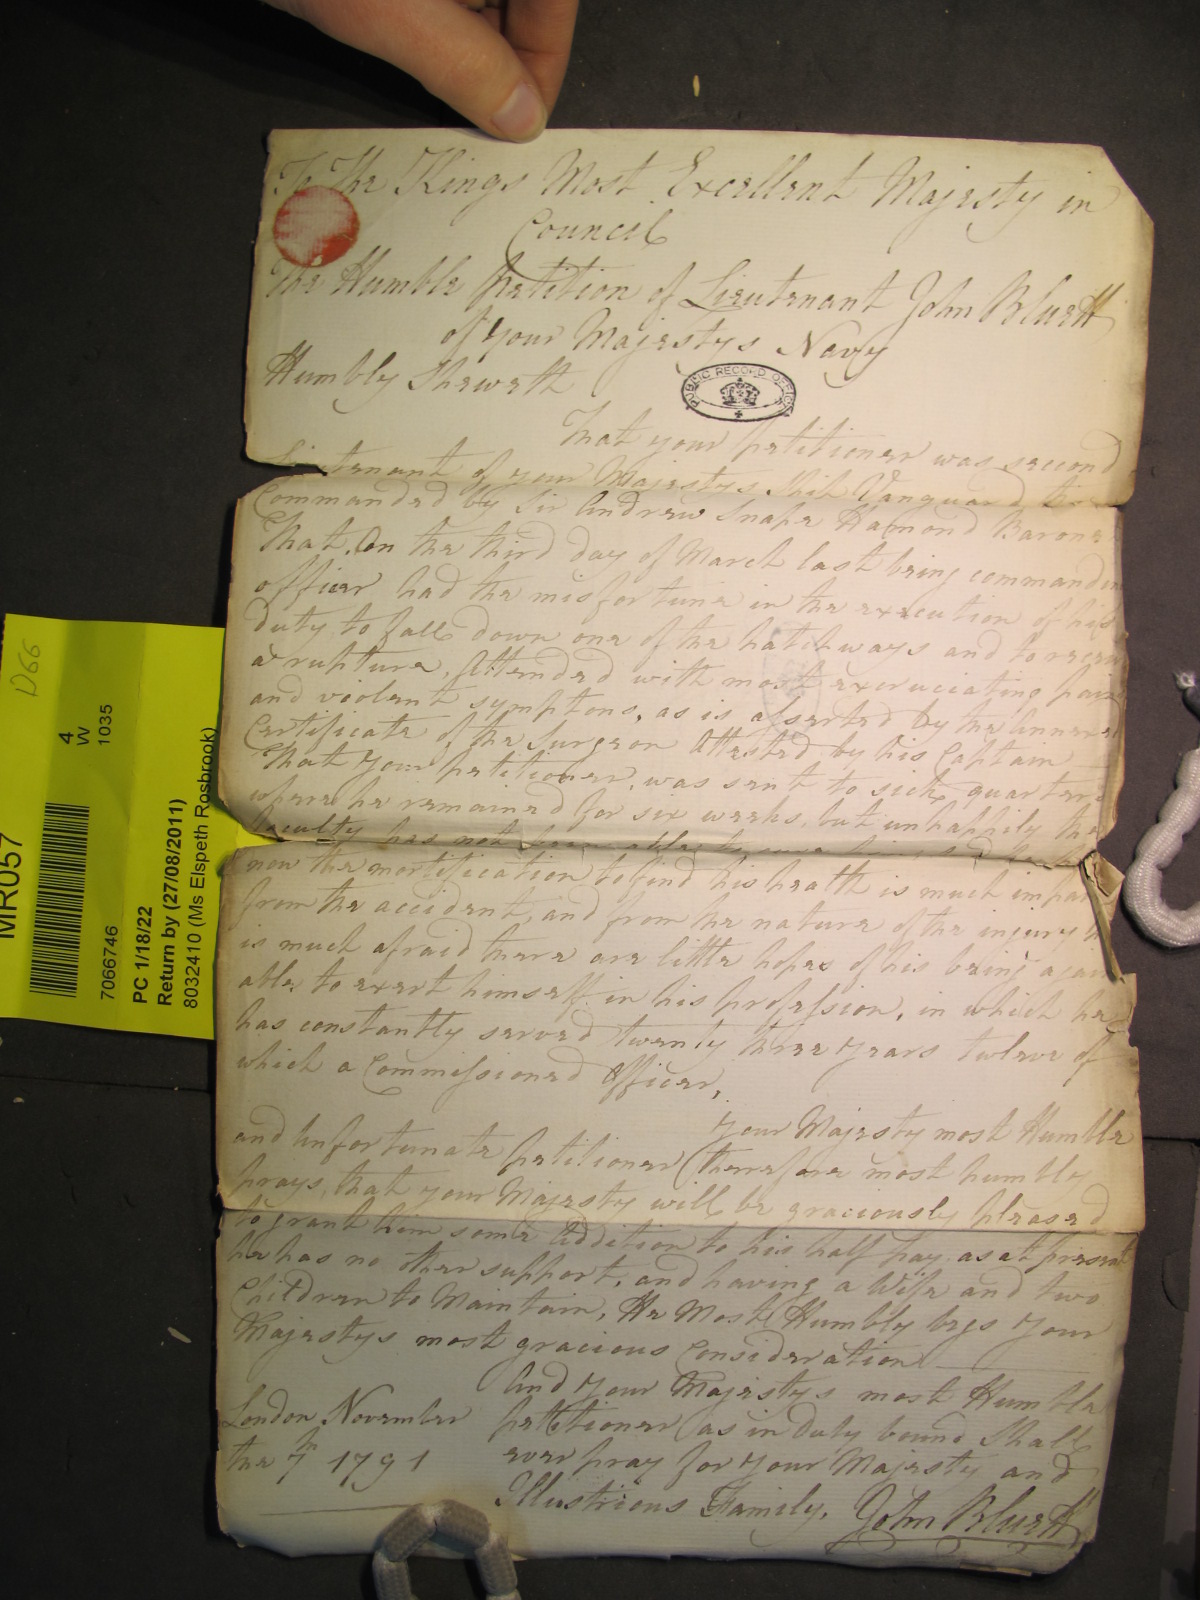 To The Kings Most Excellent Majesty in
Council
The Humble Petition of Lieutenant John Blurtt
of your Majestys Navy
Humbly Sheweth
PUBLIC RECORD OFFICE
That your petitioner was second
Lieutenant of your Majestys Ship Vanguard
Commanded by Sir Andrew Snape Hamond Baronet
That, On the third day of March last being commanding
officer had the misfortune in the execution of his
duty to fall down one of the hatchways and to receive
a rupture, Attended with most excruciating pain
and violent symptons, as is asserted by the annexed
Certificate of the Surgeon Attested by his Captain
That your petitioner, was sent to sick quarters
where he remained for six weeks, but unhappily the
faculty has not been able to cure him, and he has
now the mortification to find his health is much impar
from the accident, and from the nature of the injury he
is much afraid there are little hopes of his being again
able to exert himself in his profession, in which he
has constantly served twenty three years twleve of
which a Commissioned Officer,
your Majesty most Humble
and Unfortunate petitioner therefore most humbly
prays, that your Majesty will be graciously pleased
to grant him some Addition to his half pay as at present
he has no other support, and having a Wife and two
Children to Maintain, He Most Humbly begs your
Majestys most gracious Consideration
And your Majestys most Humble
petitioner as in duty bound Shall
ever pray for your Majesty and
Illustrious Family.
London November
the 7th 1791
John Blurtt
D66
4
W
1035
MR057
7066746
PC 1/18/22
Return by (27/08/2011)
8032410 (Ms Elspeth Rosbrook)